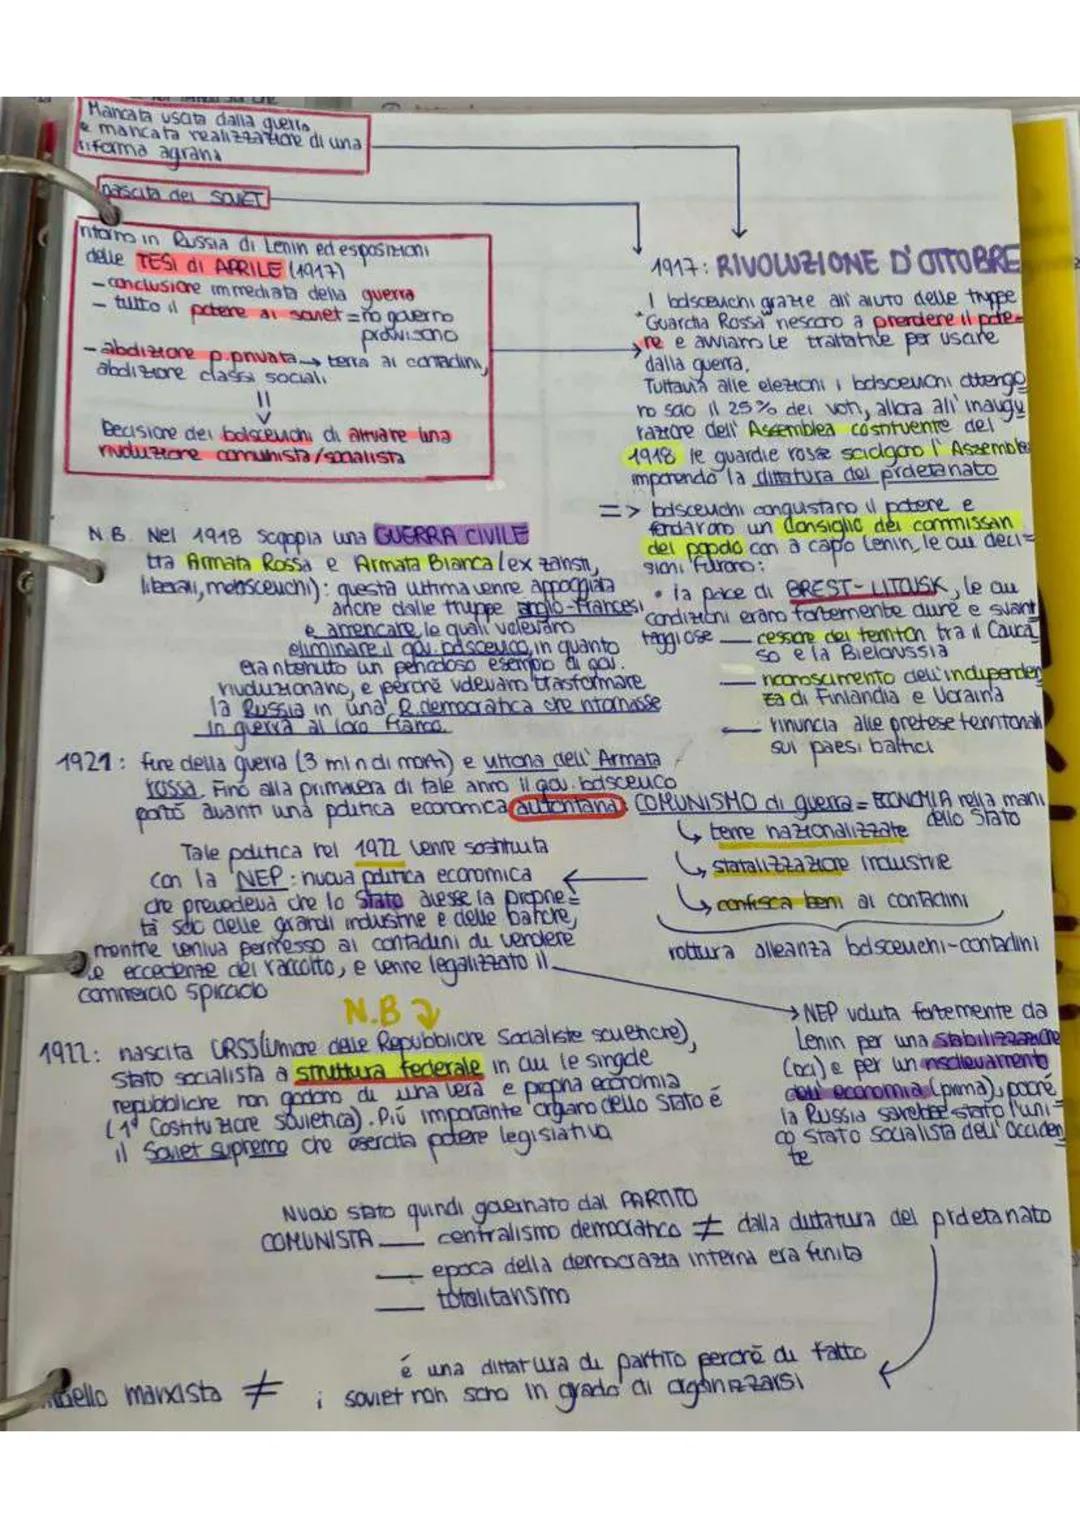 Mancata uscita dalla guerra
e mancata realizzazione di una
riforma agraria
nascita dei SOVIET
ritorno in Russia di Lenin ed esposizioni
delle TESI di APRILE (1917)
- conclusione immediata della guerra
- tutto il potere ai soviet = no governo
provvisorio
- abdizione p. privata → terra ai contadini,
abdizione classi sociali
Decisione dei bolscevichi di attivare una
rivoluzione comunista/socialista
1917: RIVOLUZIONE D'OTTOBRE
I bolscevichi grazie all'aiuto delle truppe
"Guardia Rossa" riescono a prendere il pote-
re e avviano le trattative per uscire
dalla guerra.
Tuttavia alle elezioni i bolscevichi ottengo
no solo il 25% dei voti, allora all'inaugu
razione dell'Assemblea costituente del
1918 le guardie rosse sciolgono l'Assemblea
imponendo la dittatura del proletariato
=> bolscevichi conquistano il potere e
fondarono un Consiglio dei commissari
del popolo con a capo Lenin, le cui deci=
sioni furono:
• la pace di BREST-LITOVSK, le cui
condizioni erano fortemente dure e svant
taggiose — cessione dei territori tra il Cauca
so e la Bielorussia
— riconoscimento dell'indipenden
za di Finlandia e Ucraina
— rinuncia alle pretese territoriali
sui paesi baltici
N.B. Nel 1918 scoppia una GUERRA CIVILE
tra Armata Rossa e Armata Bianca (ex zaristi,
liberali, menscevichi): questa ultima venne appoggiata
anche dalle truppe anglo-francesi
e americane, le quali volevano
eliminare il gov. bolscevico, in quanto
era ritenuto un pericoloso esempio di gov.
rivoluzionario, e perché volevano trasformare
la Russia in una R. democratica che ritornasse
in guerra al loro fianco.
1921: fine della guerra (3 mln di morti) e vittoria dell'Armata
rossa. Fino alla primavera di tale anno il gov. bolscevico
portò avanti una politica economica autoritaria: COMUNISMO di guerra = ECONOMIA nella mani
dello Stato
↳ terre nazionalizzate
↳ statalizzazione industrie
↳ confisca beni ai contadini
rottura alleanza bolscevichi-contadini
Tale politica nel 1922 venne sostituita
con la NEP: nuova politica economica
che prevedeva che lo Stato avesse la proprie=
tà solo delle grandi industrie e delle banche,
mentre veniva permesso ai contadini di vendere
le eccedenze del raccolto, e venne legalizzato il
commercio spicciolo
→ NEP voluta fortemente da
Lenin per una stabilizzazione
(poi) e per un risollevamento
dell'economia (prima), poiché
la Russia sarebbe stato l'uni=
co Stato socialista dell'Occiden
te
N.B
1922: nascita URSS (unione delle Repubbliche Socialiste sovietiche),
Stato socialista a struttura federale in cui le singole
repubbliche non godono di una vera e propria economia
(1ª Costituzione sovietica). Più importante organo dello Stato è
il Soviet supremo che esercita potere legislativo
Nuovo stato quindi governato dal PARTITO
COMUNISTA — centralismo democratico ≠ dalla dittatura del proletariato
— epoca della democrazia interna era finita
— totalitarismo
è una dittatura di partito perché di fatto
modello marxista ≠ i soviet non sono in grado di organizzarsi